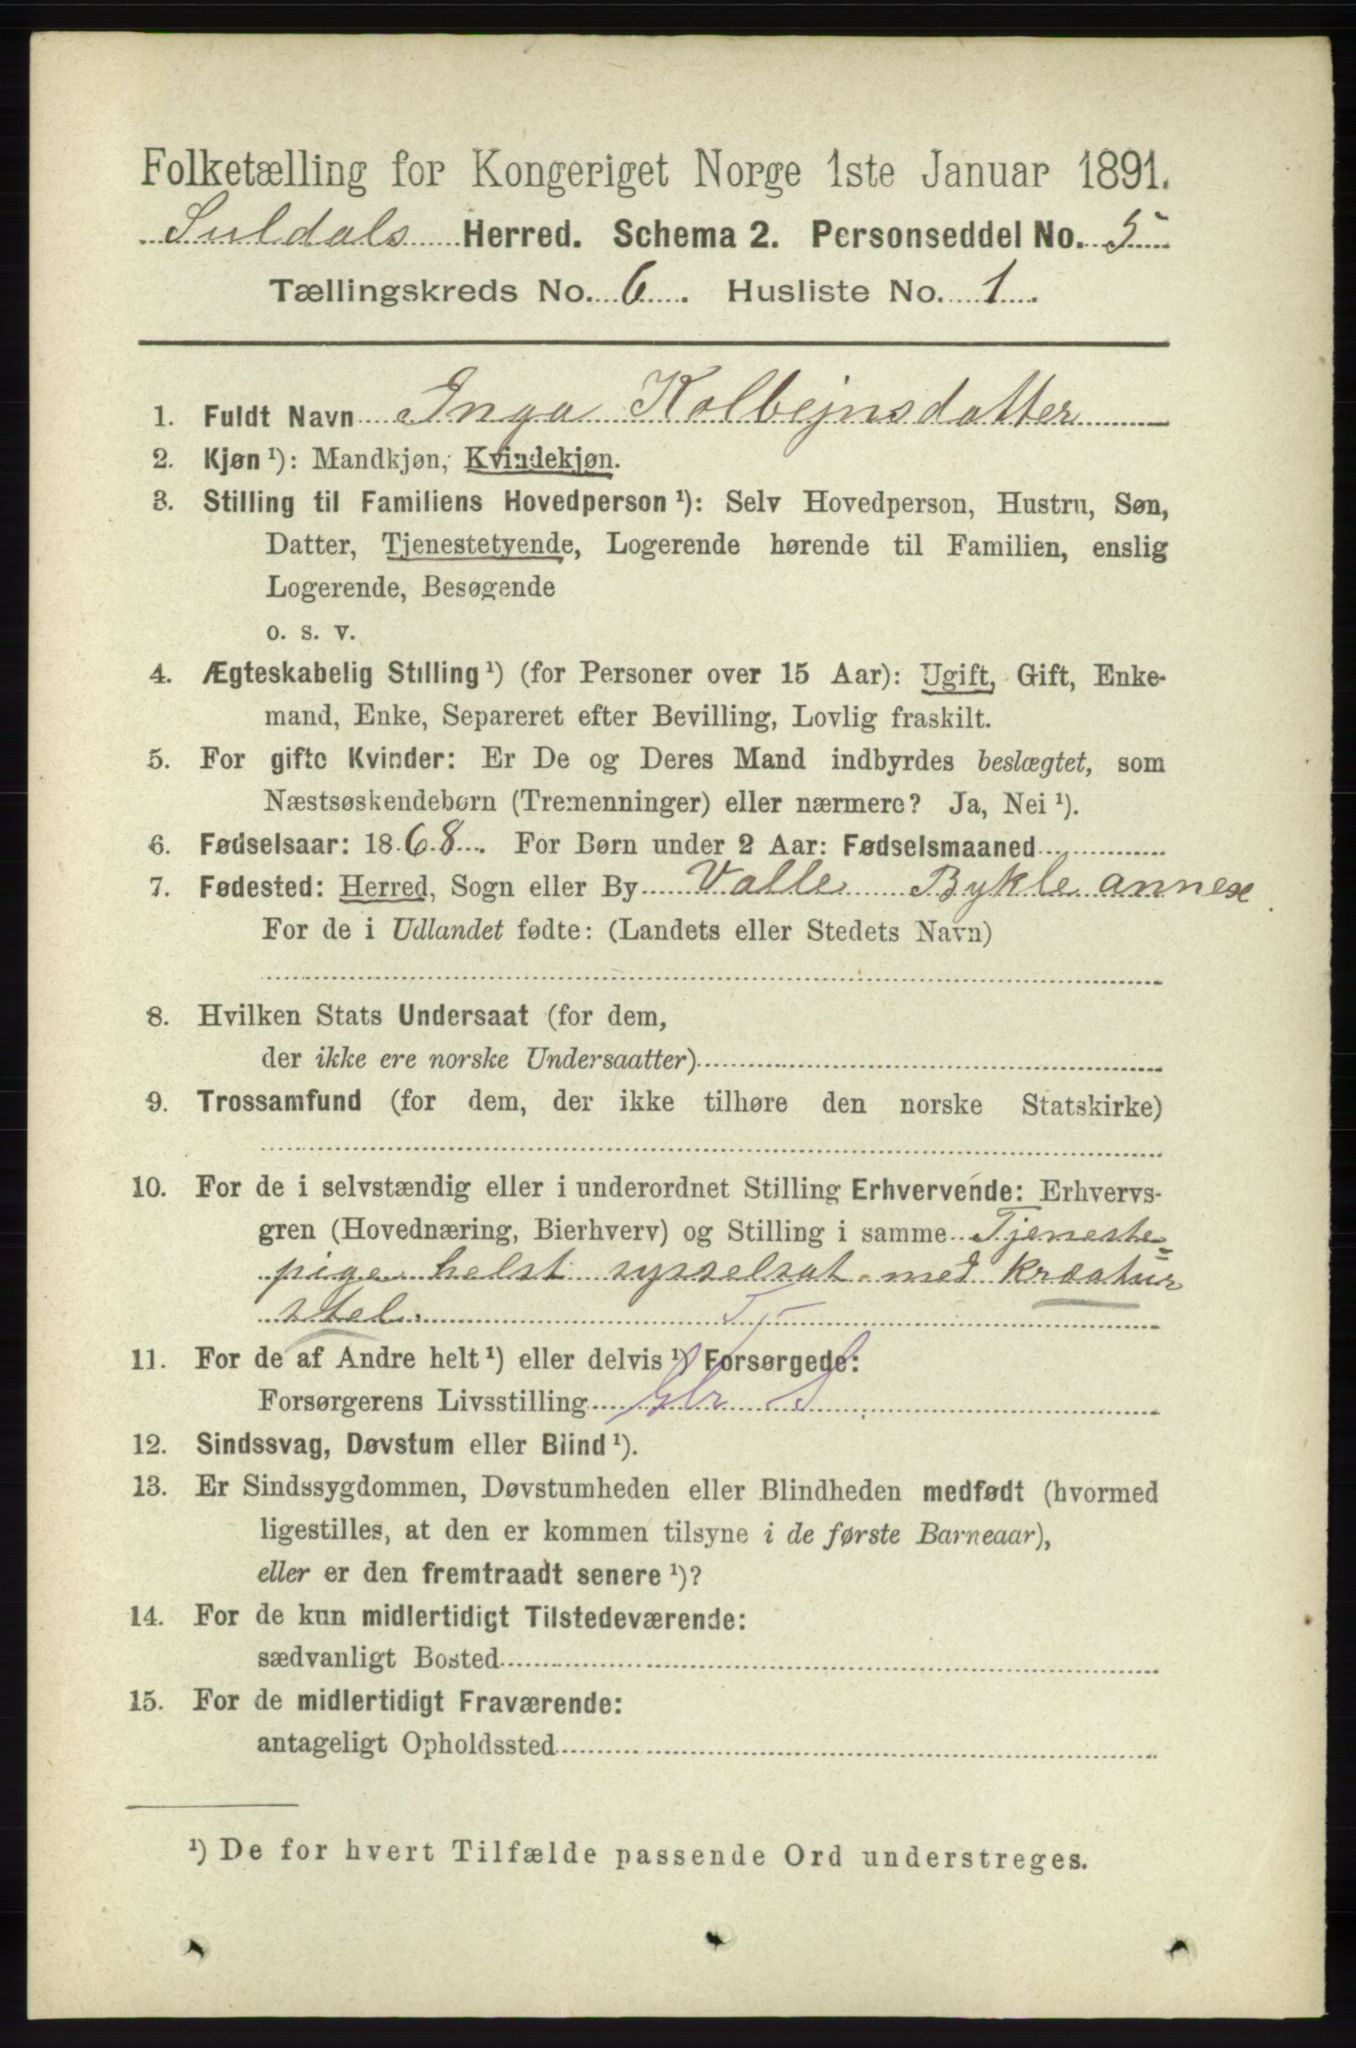 Folketælling for Kongeriget Norge 1ste Januar 1891.
Suldals Herred. Schema 2. Personseddel No. 5
Tællingskreds No. 6. Husliste No. 1.
1. Fuldt Navn Inga Kolbejnsdatter
2. Kjøn ¹): Mandkjøn, Kvindekjøn.
3. Stilling til Familiens Hovedperson ¹): Selv Hovedperson, Hustru, Søn,
Datter, Tjenestetyende, Logerende hørende til Familien, enslig
Logerende, Besøgende
o. s. v.
4. Ægteskabelig Stilling ¹) (for Personer over 15 Aar): Ugift, Gift, Enke-
mand, Enke, Separeret efter Bevilling, Lovlig fraskilt.
5. For gifte Kvinder: Er De og Deres Mand indbyrdes beslægtet, som
Næstsøskendebørn (Tremenninger) eller nærmere? Ja, Nei ¹).
6. Fødselsaar: 1868. For Børn under 2 Aar: Fødselsmaaned
7. Fødested: Herred, Sogn eller By Valle Bykle annex
For de i Udlandet fødte: (Landets eller Stedets Navn)
8. Hvilken Stats Undersaat (for dem,
der ikke ere norske Undersaatter)
9. Trossamfund (for dem, der ikke tilhøre den norske Statskirke)
10. For de i selvstændig eller i underordnet Stilling Erhvervende: Erhvervs-
gren (Hovednæring, Bierhverv) og Stilling i samme Tjeneste-
pige helst sysselsat med kreatur
stel. Tj
11. For de af Andre helt ¹) eller delvis ¹) Forsørgede:
Forsørgerens Livsstilling
12. Sindssvag, Døvstum eller Blind ¹).
13. Er Sindssygdommen, Døvstumheden eller Blindheden medfødt (hvormed
ligestilles, at den er kommen tilsyne i de første Barneaar),
eller er den fremtraadt senere ¹)?
14. For de kun midlertidigt Tilstedeværende:
sædvanligt Bosted
15. For de midlertidigt Fraværende:
antageligt Opholdssted
¹) De for hvert Tilfælde passende Ord understreges.